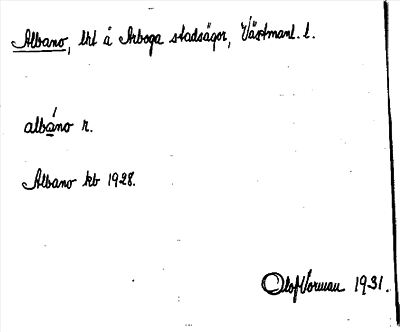 Albano, lht å Arboga stadsägor, Västmanl. l.
albáno r.
Albano kb 1928.
Olof Vorman 1931.